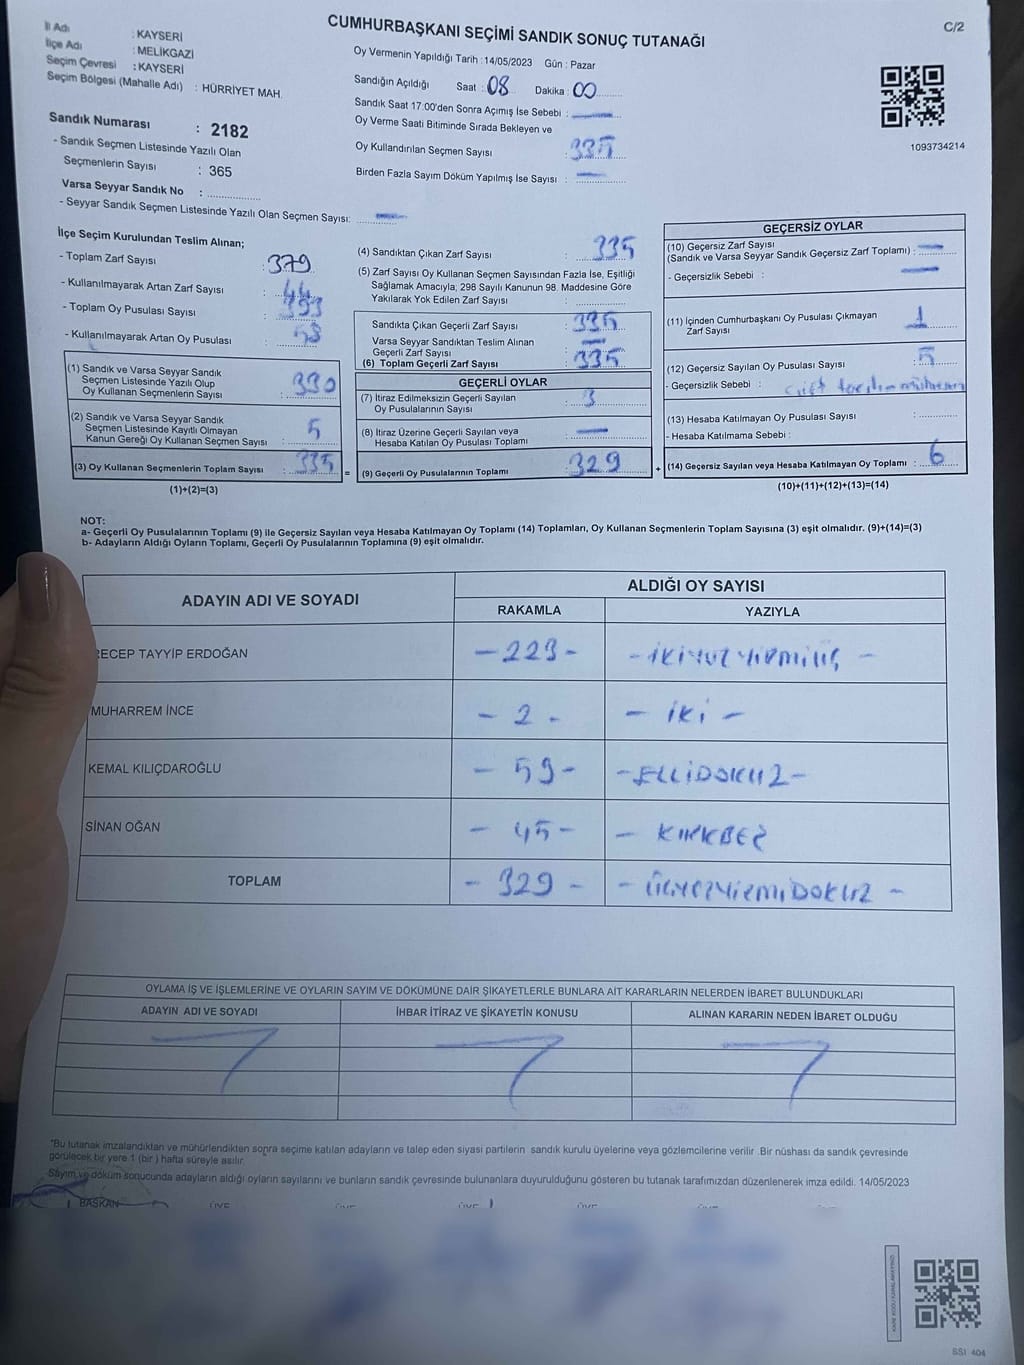 CUMHURBAŞKANI SEÇİMİ SANDIK SONUÇ TUTANAĞI
C/2
İl Adı : KAYSERİ
İlçe Adı : MELİKGAZİ
Seçim Çevresi : KAYSERİ
Seçim Bölgesi (Mahalle Adı) : HÜRRİYET MAH.
Oy Vermenin Yapıldığı Tarih : 14/05/2023 Gün : Pazar
Sandığın Açıldığı Saat : 08 Dakika : 00
Sandık Saat 17:00'den Sonra Açımış İse Sebebi :
Oy Verme Saati Bitiminde Sırada Bekleyen ve
Oy Kullandırılan Seçmen Sayısı : 335
Birden Fazla Sayım Döküm Yapılmış İse Sayısı :
1093734214
Sandık Numarası : 2182
- Sandık Seçmen Listesinde Yazılı Olan
Seçmenlerin Sayısı : 365
Varsa Seyyar Sandık No :
- Seyyar Sandık Seçmen Listesinde Yazılı Olan Seçmen Sayısı:
İlçe Seçim Kurulundan Teslim Alınan;
- Toplam Zarf Sayısı : 379
- Kullanılmayarak Artan Zarf Sayısı : 44
- Toplam Oy Pusulası Sayısı :
- Kullanılmayarak Artan Oy Pusulası : 58
(1) Sandık ve Varsa Seyyar Sandık
Seçmen Listesinde Yazılı Olup
Oy Kullanan Seçmenlerin Sayısı : 330
(2) Sandık ve Varsa Seyyar Sandık
Seçmen Listesinde Kayıtlı Olmayan
Kanun Gereği Oy Kullanan Seçmen Sayısı : 5
(3) Oy Kullanan Seçmenlerin Toplam Sayısı : 335 =
(1)+(2)=(3)
(4) Sandıktan Çıkan Zarf Sayısı : 335
(5) Zarf Sayısı Oy Kullanan Seçmen Sayısından Fazla İse, Eşitliği
Sağlamak Amacıyla; 298 Sayılı Kanunun 98. Maddesine Göre
Yakılarak Yok Edilen Zarf Sayısı :
Sandıkta Çıkan Geçerli Zarf Sayısı : 335
Varsa Seyyar Sandıktan Teslim Alınan
Geçerli Zarf Sayısı :
(6) Toplam Geçerli Zarf Sayısı : 335
GEÇERLİ OYLAR
(7) İtiraz Edilmeksizin Geçerli Sayılan
Oy Pusulalarının Sayısı : 3
(8) İtiraz Üzerine Geçerli Sayılan veya
Hesaba Katılan Oy Pusulası Toplamı :
(9) Geçerli Oy Pusulalarının Toplamı : 329 +
GEÇERSİZ OYLAR
(10) Geçersiz Zarf Sayısı
(Sandık ve Varsa Seyyar Sandık Geçersiz Zarf Toplamı) :
- Geçersizlik Sebebi :
(11) İçinden Cumhurbaşkanı Oy Pusulası Çıkmayan
Zarf Sayısı : 1
(12) Geçersiz Sayılan Oy Pusulası Sayısı : 5
- Geçersizlik Sebebi : çift
(13) Hesaba Katılmayan Oy Pusulası Sayısı :
- Hesaba Katılmama Sebebi :
(14) Geçersiz Sayılan veya Hesaba Katılmayan Oy Toplamı : 6
(10)+(11)+(12)+(13)=(14)
NOT:
a- Geçerli Oy Pusulalarının Toplamı (9) ile Geçersiz Sayılan veya Hesaba Katılmayan Oy Toplamı (14) Toplamları, Oy Kullanan Seçmenlerin Toplam Sayısına (3) eşit olmalıdır. (9)+(14)=(3)
b- Adayların Aldığı Oyların Toplamı, Geçerli Oy Pusulalarının Toplamına (9) eşit olmalıdır.
ADAYIN ADI VE SOYADI
ALDIĞI OY SAYISI
RAKAMLA YAZIYLA
RECEP TAYYİP ERDOĞAN - 223 - - İKİYÜZ YİRMİ ÜÇ -
MUHARREM İNCE - 2 - - İKİ -
KEMAL KILIÇDAROĞLU - 59 - - ELLİDOKUZ -
SİNAN OĞAN - 45 - - KIRKBEŞ
TOPLAM - 329 - - ÜÇYÜZYİRMİDOKUZ -
OYLAMA İŞ VE İŞLEMLERİNE VE OYLARIN SAYIM VE DÖKÜMÜNE DAİR ŞİKAYETLERLE BUNLARA AİT KARARLARIN NELERDEN İBARET BULUNDUKLARI
ADAYIN ADI VE SOYADI İHBAR İTİRAZ VE ŞİKAYETİN KONUSU ALINAN KARARIN NEDEN İBARET OLDUĞU
"Bu tutanak imzalandıktan ve mühürlendikten sonra seçime katılan adayların ve talep eden siyasi partilerin sandık kurulu üyelerine veya gözlemcilerine verilir .Bir nüshası da sandık çevresinde
görülecek bir yere 1 (bir ) hafta süreyle asılır.
Sayım ve döküm sonucunda adayların aldığı oyların sayılarını ve bunların sandık çevresinde bulunanlara duyurulduğunu gösteren bu tutanak tarafımızdan düzenlenerek imza edildi. 14/05/2023
BAŞKAN ÜYE ÜYE ÜYE ÜYE ÜYE
SSI 404